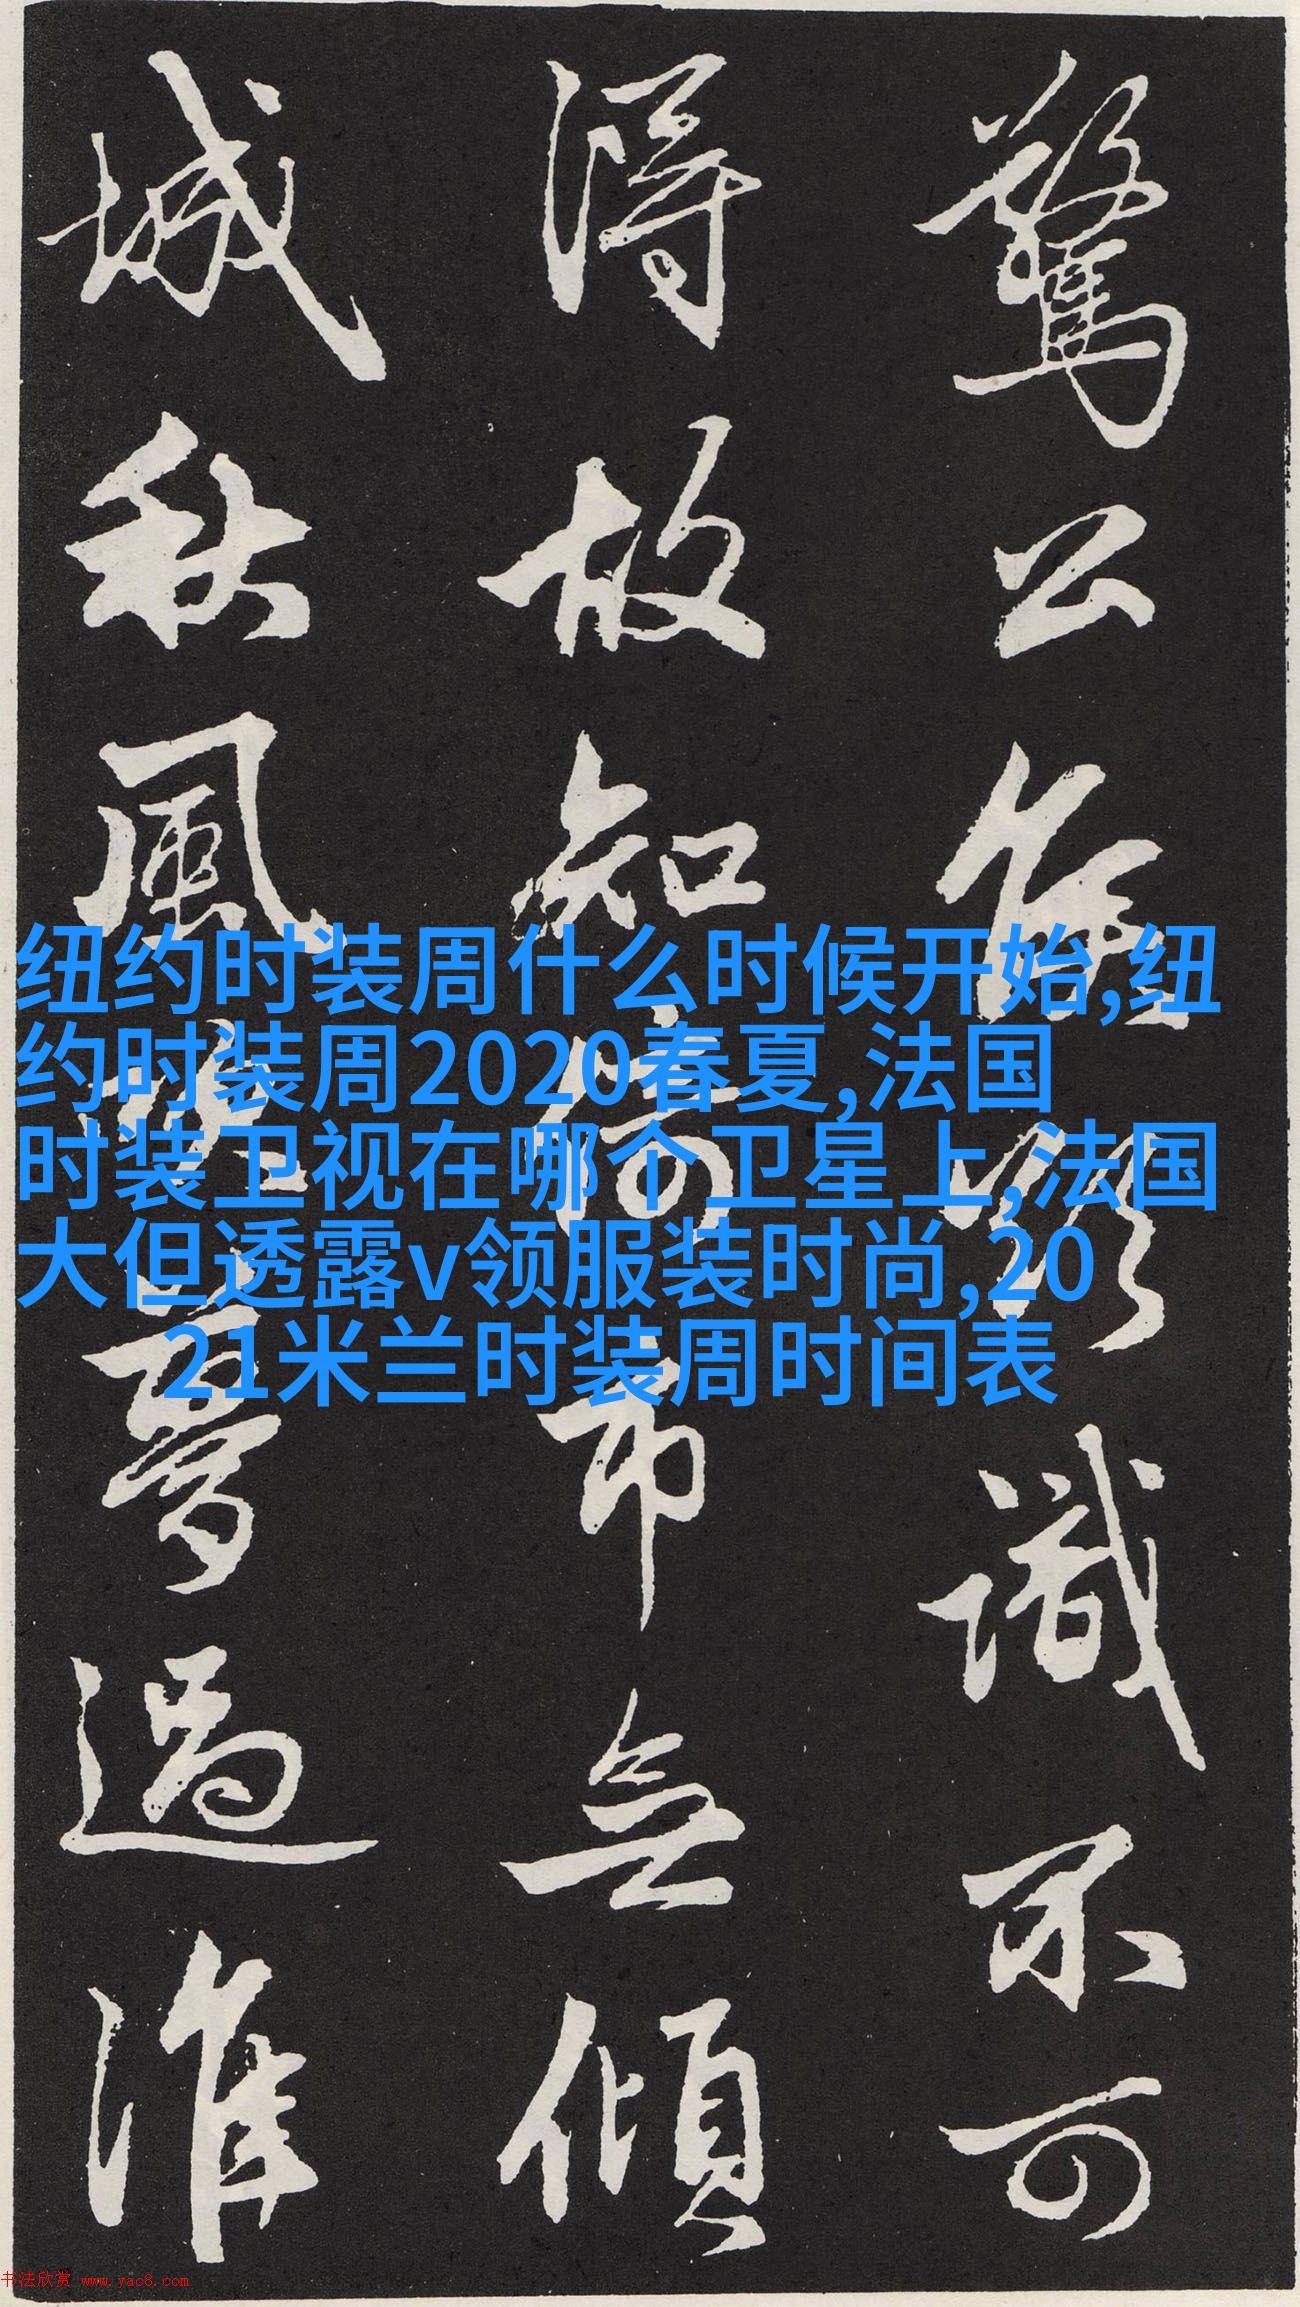 驚公識不可
得故知倚市無傾
城秋風夢過淮
纽约时装周什么时候开始,纽
约时装周2020春夏,法国
时装卫视在哪个卫星上,法国
大但透露v领服装时尚,20
21米兰时装周时间表
书法欣赏 www.yac8.com